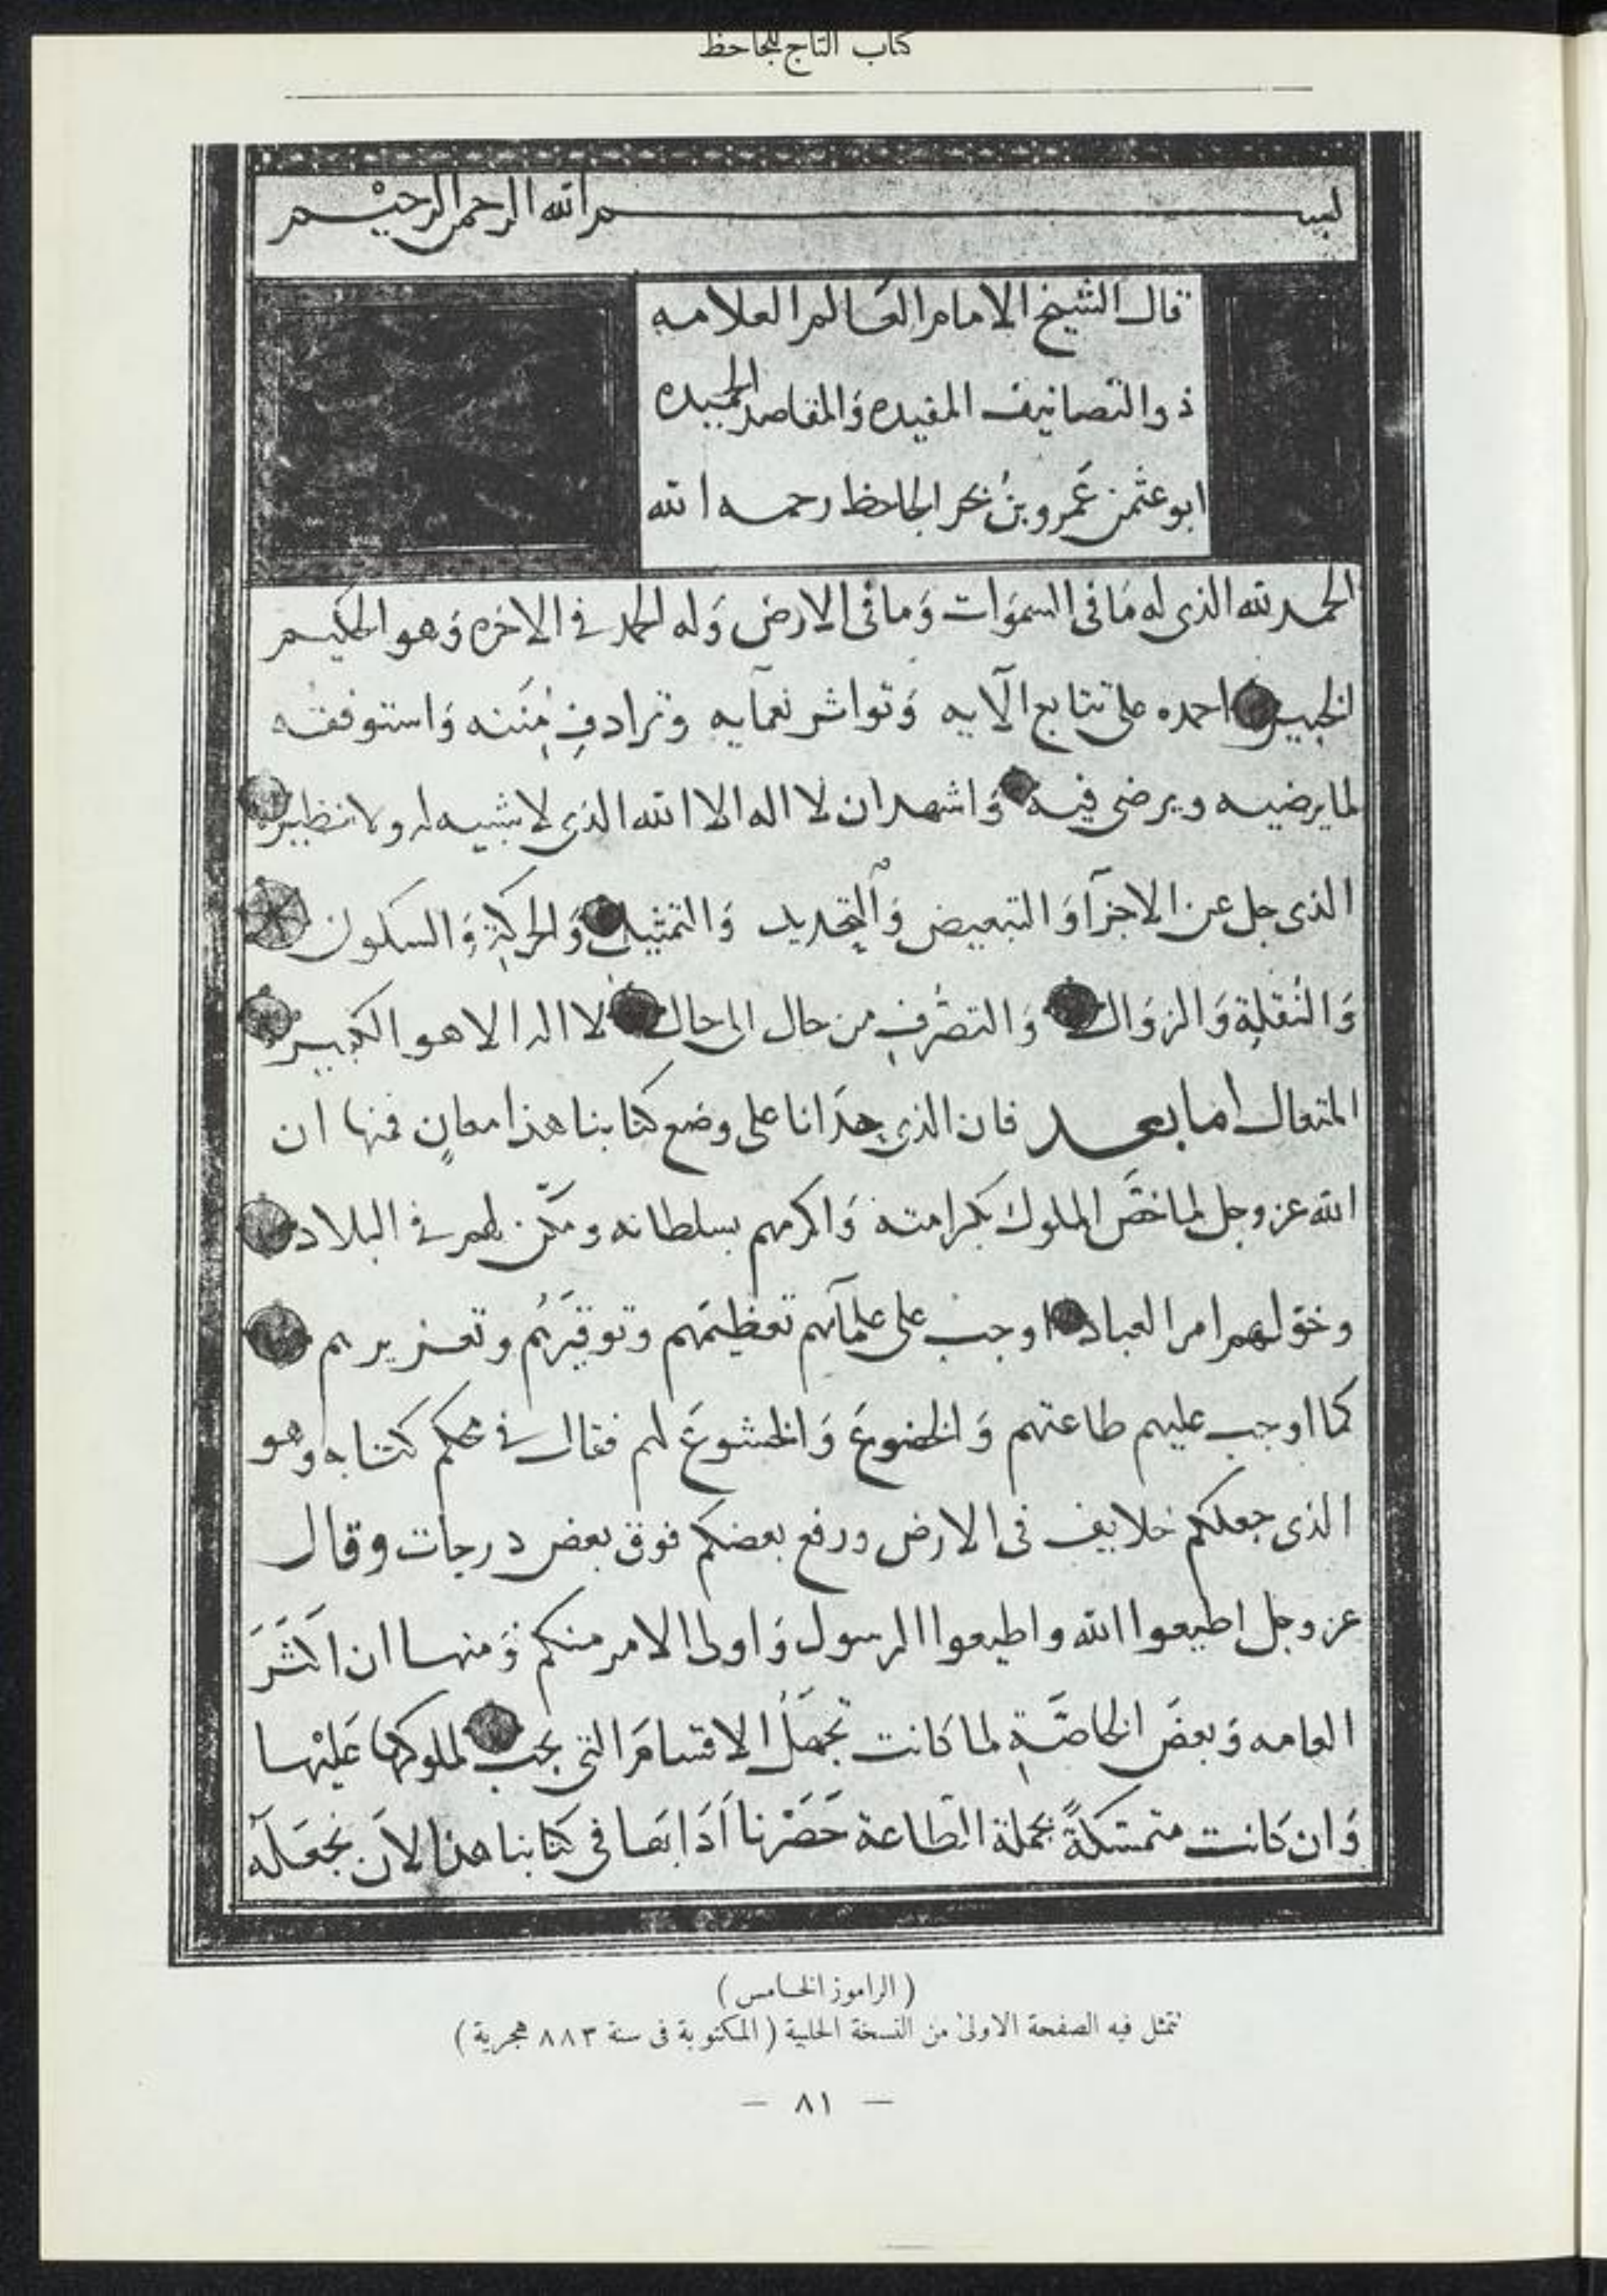 كتاب التاج للجاحظ
بسم الله الرحمن الرحيم
قال الشيخ الامام العالم العلامه
ذو التصانيف المفيده وَالمقاصد الحميده
ابو عثمن عَمرو بنُ بحر الجاحظ رحمه الله
الحمد لله الذى له مَا فى السموَات وَما فى الارض وَله الحمد فى الاخره وَهو الحكيم
الخبير احمده على تتابع الآيه وَتواتر نعمآيه وترادفِ مِننه وَاستوفقه
لما يرضيه ويرضى فيه وَاشهد ان لا اله الا الله الذى لا شبيه له ولا نظير
الذى جل عن الاجزآ وَالتبعيض وَالتحديد وَالتمثيل وَالحركةِ وَالسكون
وَالنُقلةِ وَالزوَال وَالتصرُف من حال الى حال لا اله الا هو الكبير
المتعال اما بعد فان الذى حدَانا على وضع كتابنا هذا معانٍ فمنها ان
الله عز وجل لما خصَّ الملوك بكرامته وَاكرمهم بسلطانه ومكّن لهم فى البلاد
وخوّلهم امر العباد اوجب على علمآئهم تعظيمَهم وتوقيرَهُم وتعزيرهم
كما اوجب عليهم طاعتهم وَالخضوعَ وَالخشوعَ لهم فقال فى محكم كتابه وهو
الذى جعلكم خلايف فى الارض ورفع بعضكم فوق بعض درجات وقال
عز وجل اطيعوا الله واطيعوا الرسول وَاولى الامر منكم وَمنها ان اكثَرَ
العامه وَبعضَ الخاصَّةِ لما كانت تجهَلُ الاقسامَ التى يجب لملوكها عَليْها
وَان كانت متمسكةً بجملة الطاعة حَصَرْنا آدَابَها فى كتابنا هذا لان نجعَله
( الراموز الخامس )
تتمثل فيه الصفحة الاولى من النسخة الحلبية ( المكتوبة فى سنة ٨٨٣ هجرية )
— ٨١ —